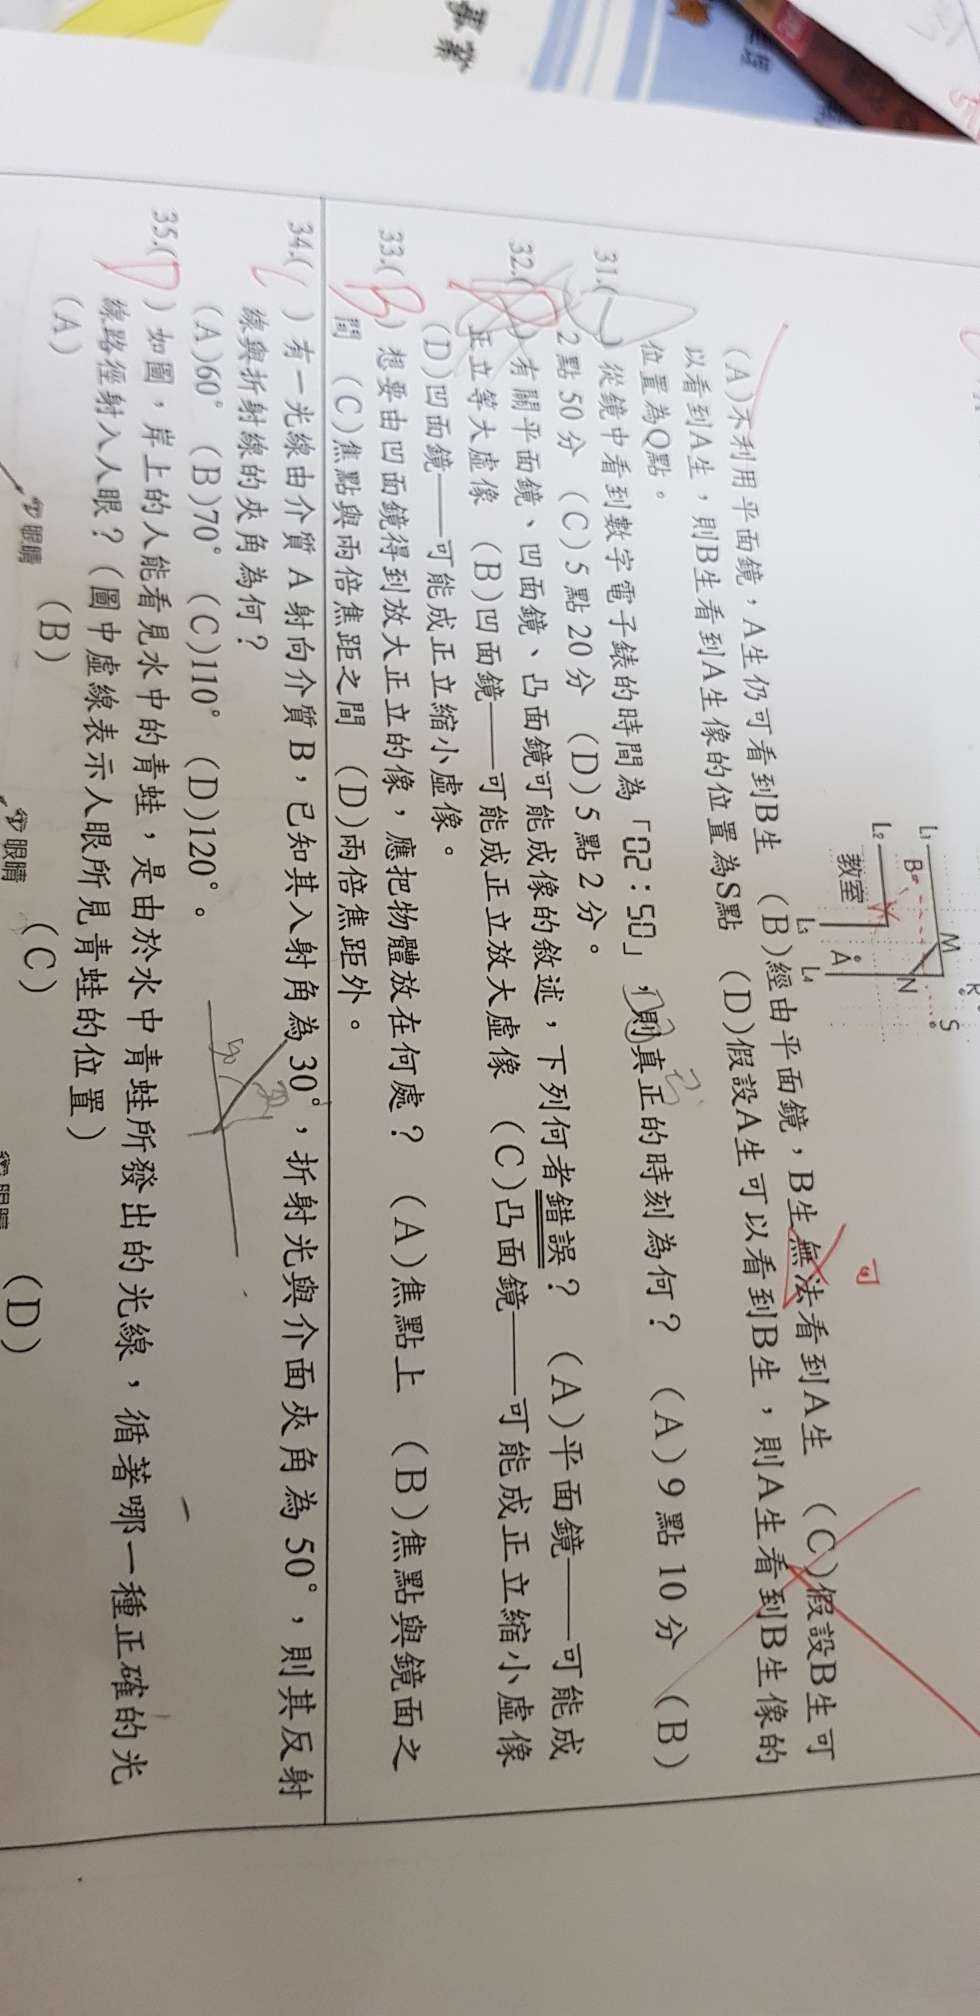 L₁ M R
B S
L₂ N
教室 L₃ A L₄
(A)不利用平面鏡，A生仍可看到B生 (B)經由平面鏡，B生無法看到A生 (C)假設B生可
可
以看到A生，則B生看到A生像的位置為S點 (D)假設A生可以看到B生，則A生看到B生像的
位置為Q點。
31.( )從鏡中看到數字電子錶的時間為「02:50」，則真正的時刻為何？ (A)9點10分 (B)
2點50分 (C)5點20分 (D)5點2分。
32.( )有關平面鏡、凹面鏡、凸面鏡可能成像的敘述，下列何者錯誤？ (A)平面鏡——可能成
正立等大虛像 (B)凹面鏡——可能成正立放大虛像 (C)凸面鏡——可能成正立縮小虛像
(D)凹面鏡——可能成正立縮小虛像。
33.(B)想要由凹面鏡得到放大正立的像，應把物體放在何處？ (A)焦點上 (B)焦點與鏡面之
間 (C)焦點與兩倍焦距之間 (D)兩倍焦距外。
34.( )有一光線由介質A射向介質B，已知其入射角為30°，折射光與介面夾角為50°，則其反射
線與折射線的夾角為何？
(A)60° (B)70° (C)110° (D)120°。
50 30
35.(D)如圖，岸上的人能看見水中的青蛙，是由於水中青蛙所發出的光線，循著哪一種正確的光
線路徑射入人眼？(圖中虛線表示人眼所見青蛙的位置)
(A) (B) (C) (D)
眼睛 眼睛 眼睛